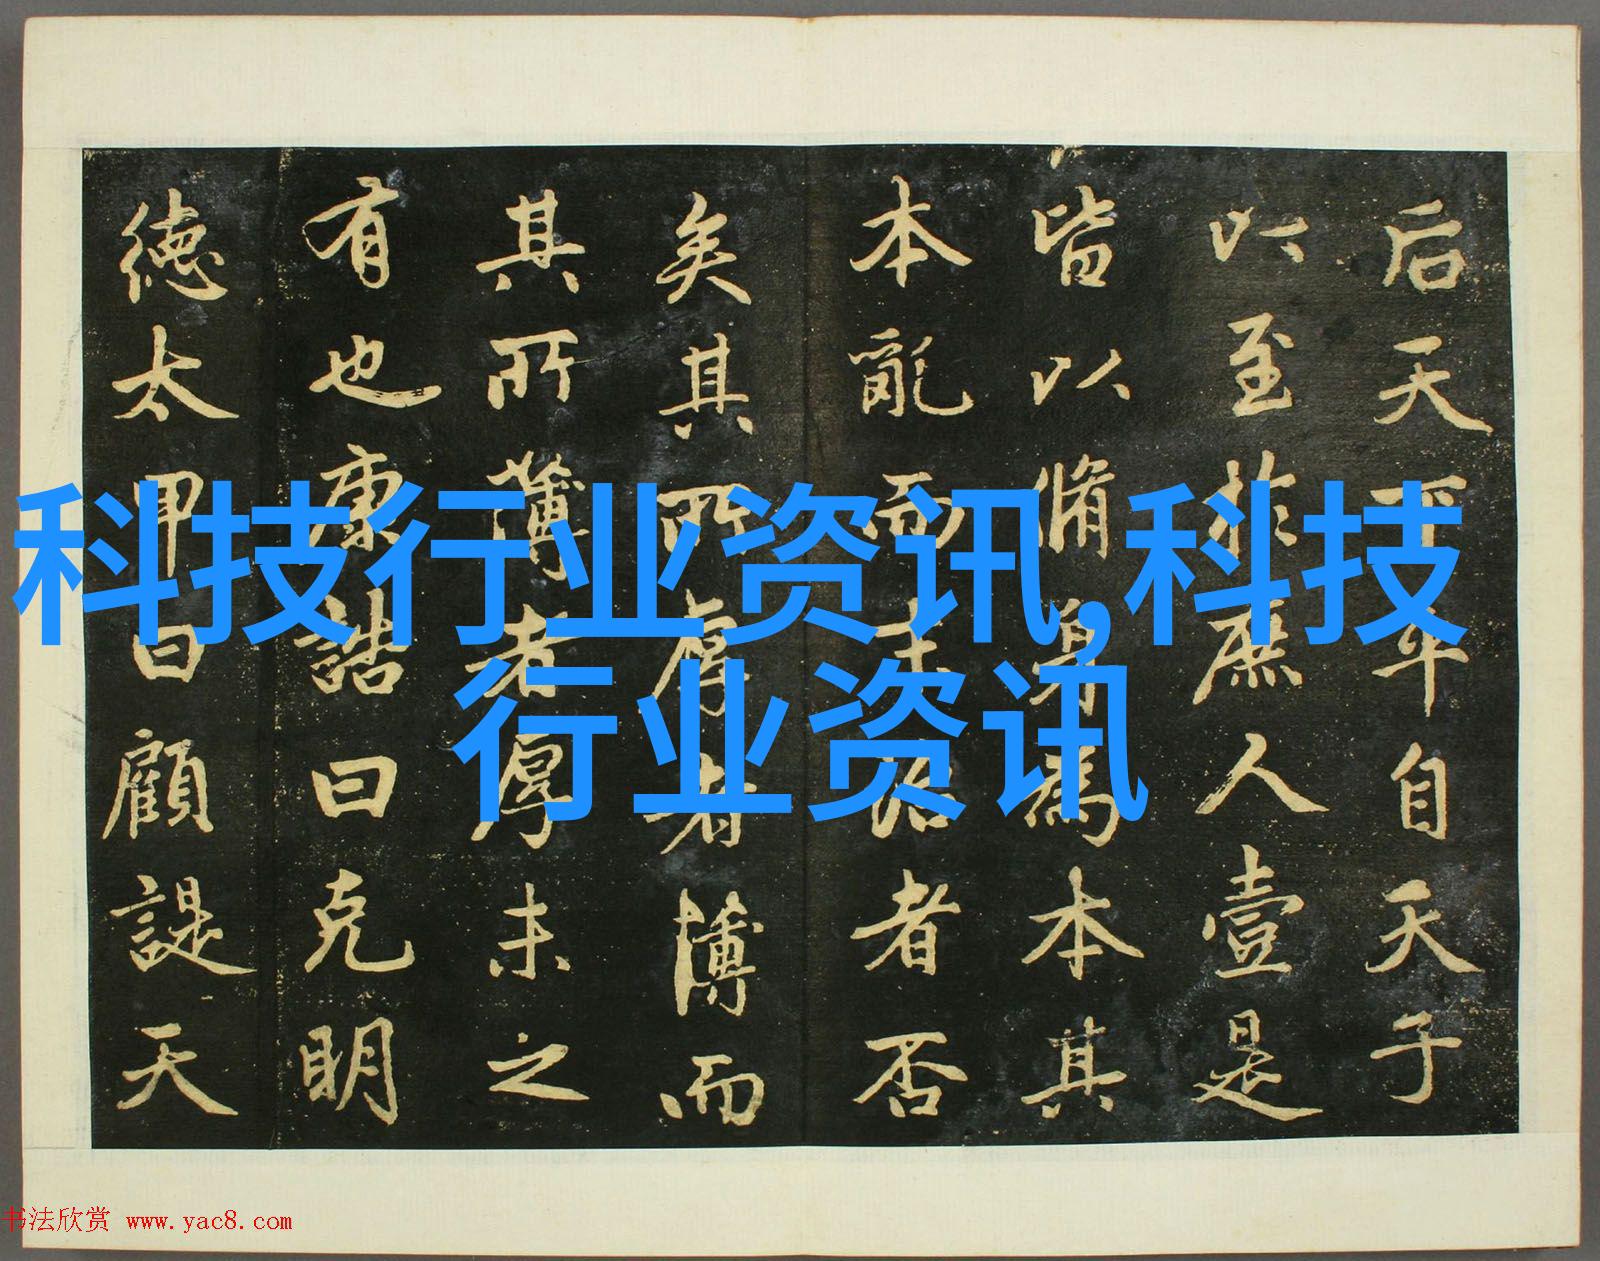 后天下平自天子
以至於庶人壹是
皆以脩身為本其
本亂而末治者否
矣其所厚者薄而
其所薄者厚未之
有也康誥曰克明
德太甲曰顧諟天
科技行业资讯,科技
行业资讯
书法欣赏 www.yac8.com